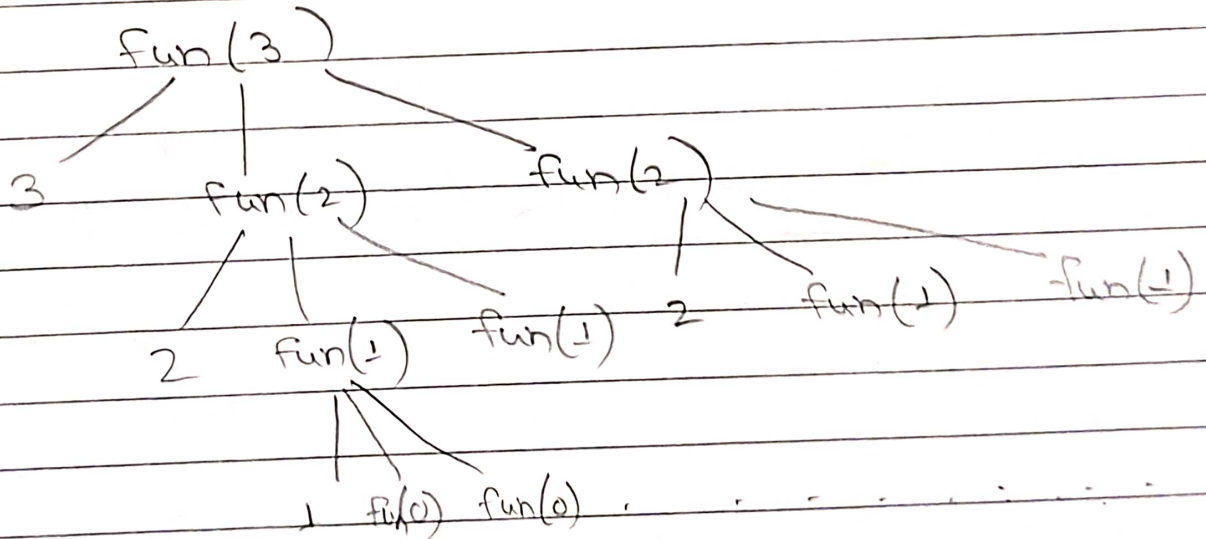 fun(3)
3 fun(2) fun(2)
2 fun(1) fun(1) 2 fun(1) fun(1)
1 fun(0) fun(0) . . . . . . . .